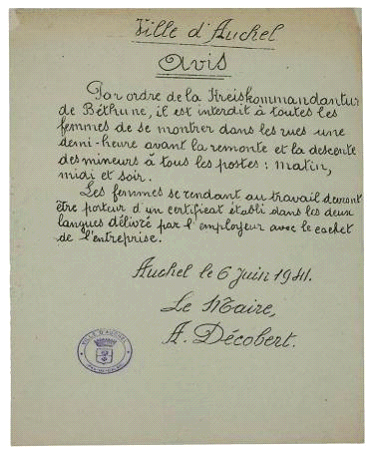 Ville d'Auchel
Avis
Par ordre de la Kreiskommandantur
de Béthune, il est interdit à toutes les
femmes de se montrer dans les rues une
demi-heure avant la remonte et la descente
des mineurs à tous les postes : matin,
midi et soir.
Les femmes se rendant au travail devront
être porteur d'un certificat établi dans les deux
langues délivré par l'employeur avec le cachet
de l'entreprise.
Auchel le 6 juin 1941.
Le Maire,
A. Décobert.
VILLE D'AUCHEL